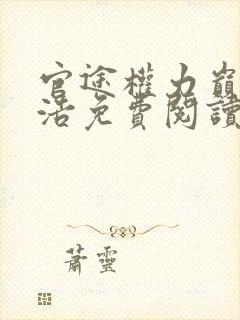 官途權力巔
活免費閱讀
蕭靈